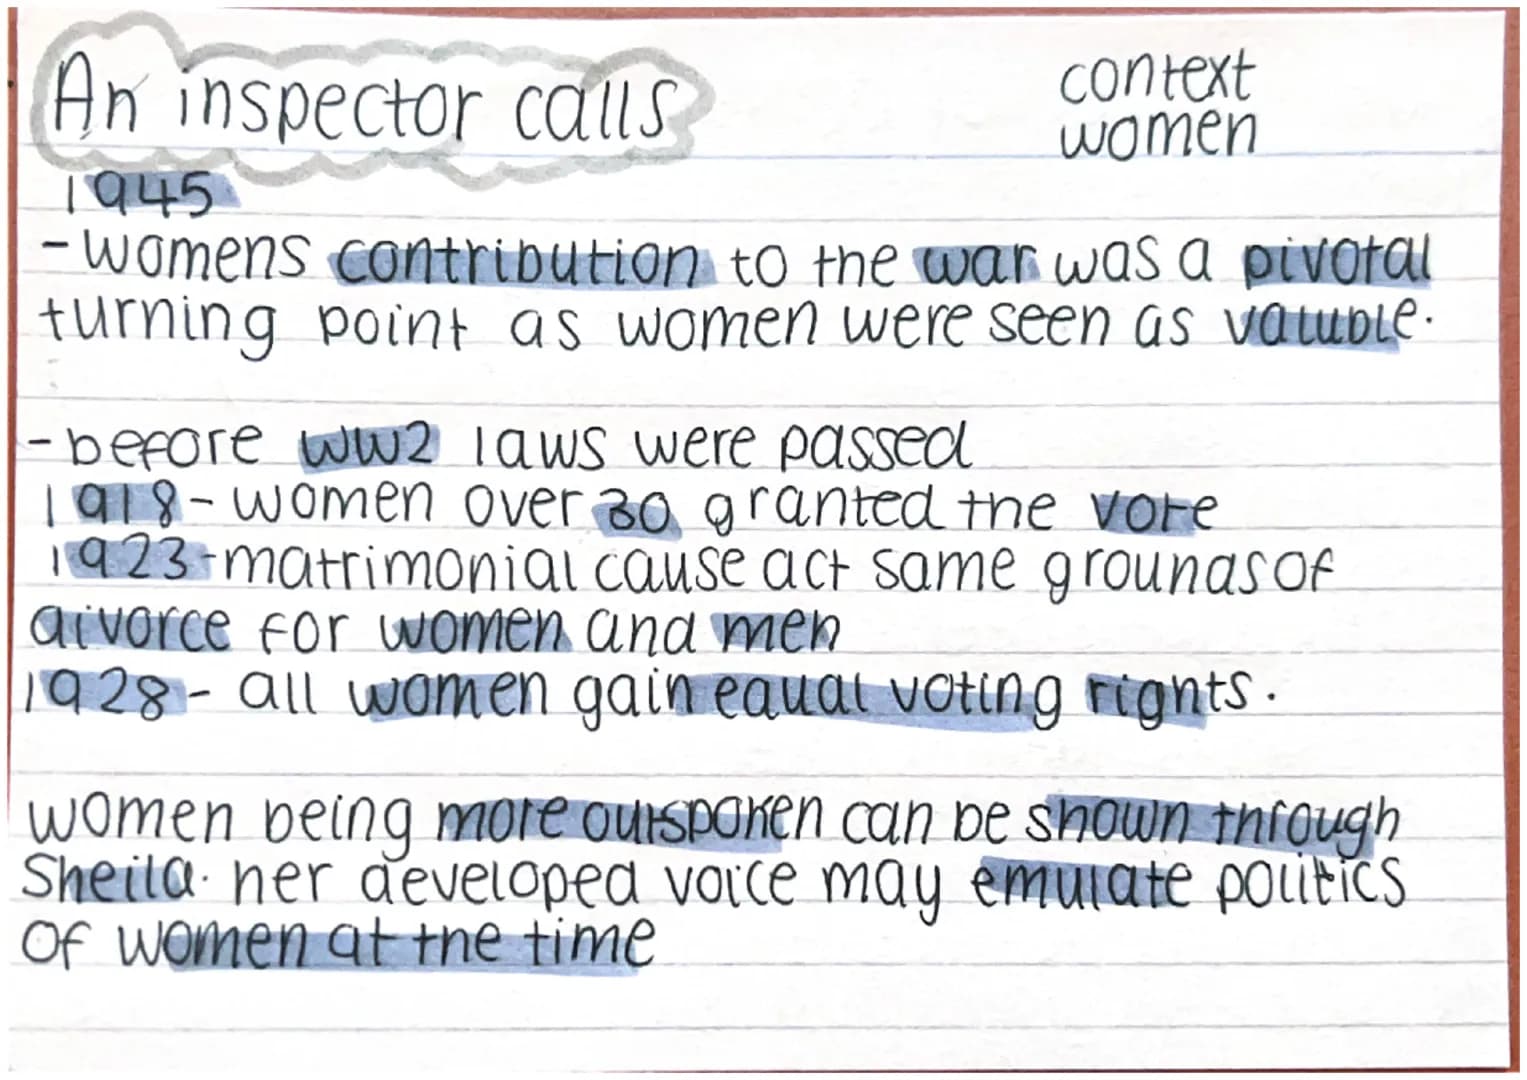 An inspector calls
context
women
1945
- womens contribution to the war was a pivotal
turning point as women were seen as valuble.
- before WW2 laws were passed
1918 - women over 30 granted the vote
1923 - matrimonial cause act same grounds of
divorce for women and men
1928 - all women gain equal voting rights.
women being more outspoken can be shown through
Sheila. her developed voice may emulate politics
of women at the time